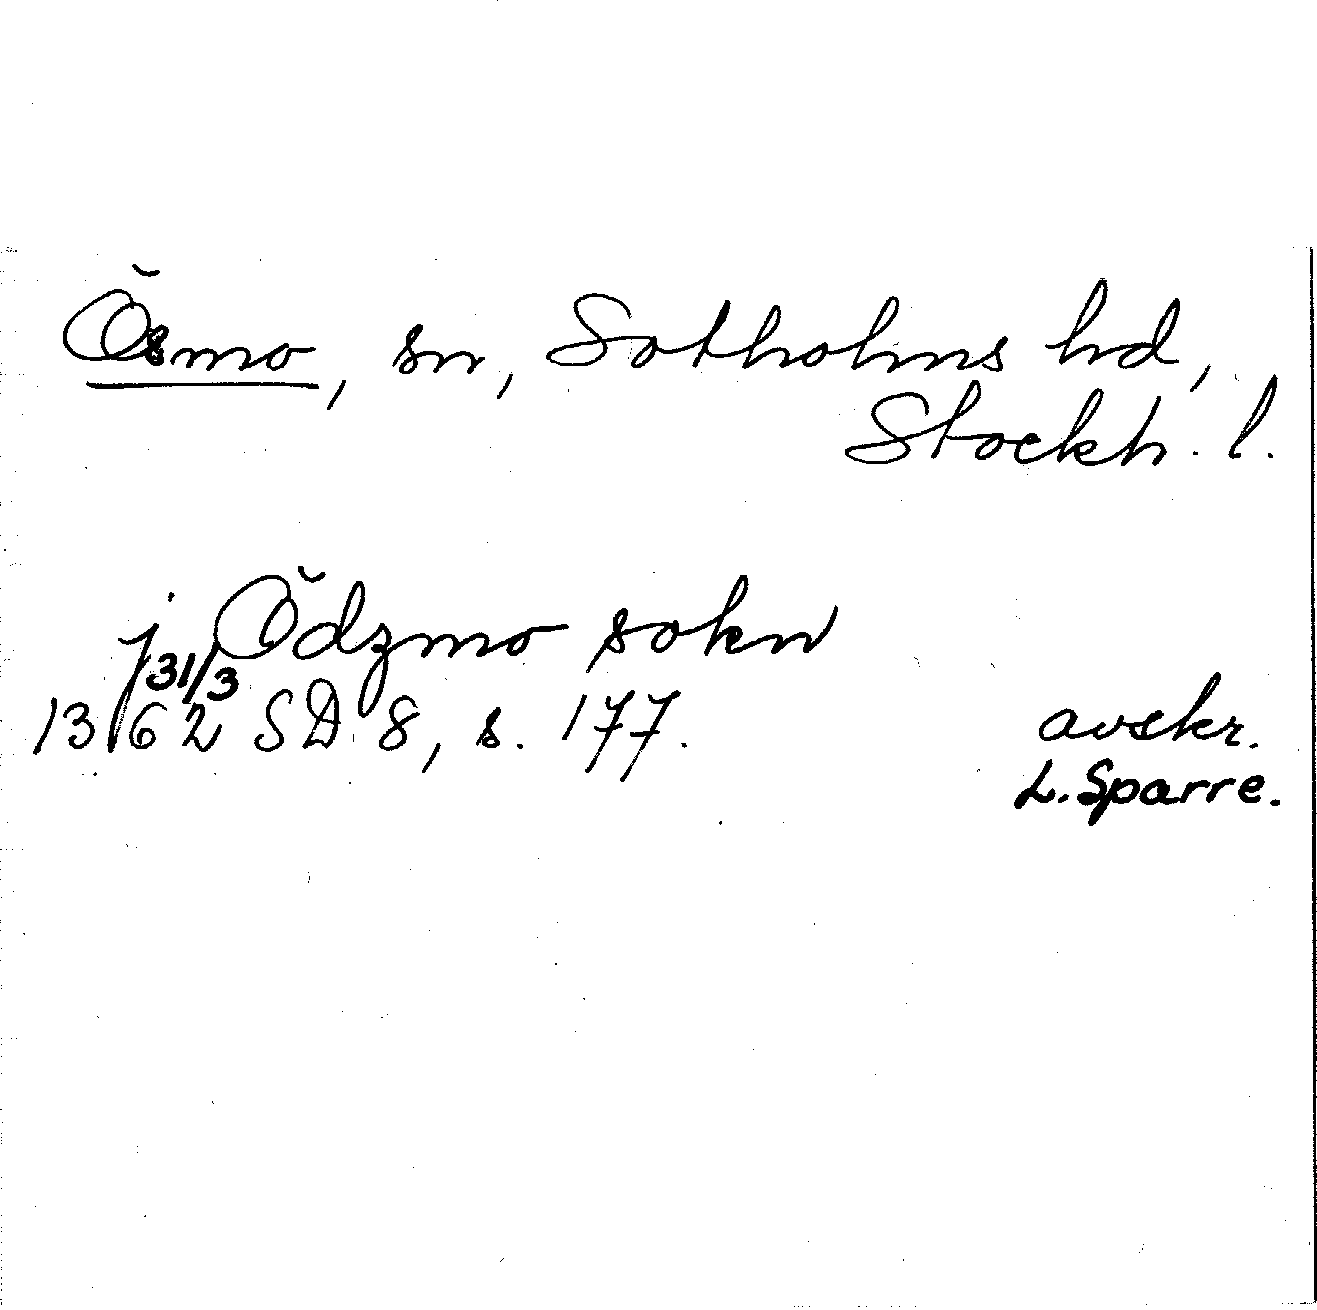 Ösmo, sn, Sotholms hd,
Stockh. l.
j Ödzmo sokn
31/3
1362 SD 8, s. 177.
avskr.
L. Sparre.